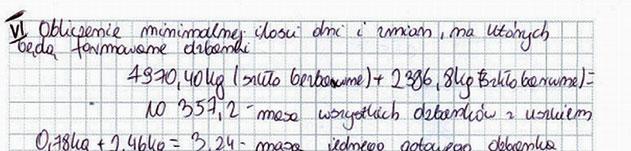 VI Obliczenie minimalnej ilości dni i zmian, na których
będą formowane dzbanki
4970,40kg (szkło bezbarwne) + 2386,8kg (szkło barwne) =
10 357,2 - masa wszystkich dzbanków z uszkiem
0,78kg + 2,46kg = 3,24 - masa jednego gotowego dzbanka